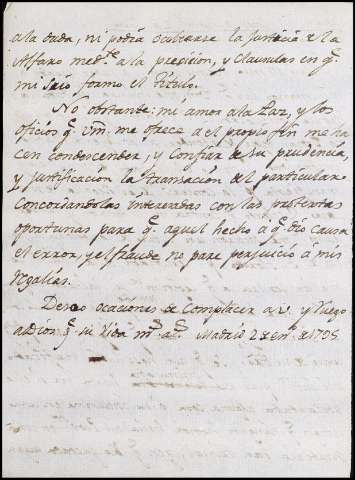 ala duda, ni podia ocultarse la Justicia de la
Alfaro med.te ala precision, y Clausulas en q.e
mi formo el Titulo.
No obstante: mi amor ala Paz, y los
oficios q.e Vm. me ofrece a el propio fin me ha
cen condescender, y Confiar de su prudencia,
y justificacion la transacion del particular
Concordandolas interesadas con las protestas
oportunas para q.e aquel hecho á q.e dio causa
el error, y el fraude no pare perjuicio á mis
regalias.
Deseo ocaciones de Complacer a V. y Ruego
a Dios g.e su Vida m.s a.s Madrid 2 de de 1795